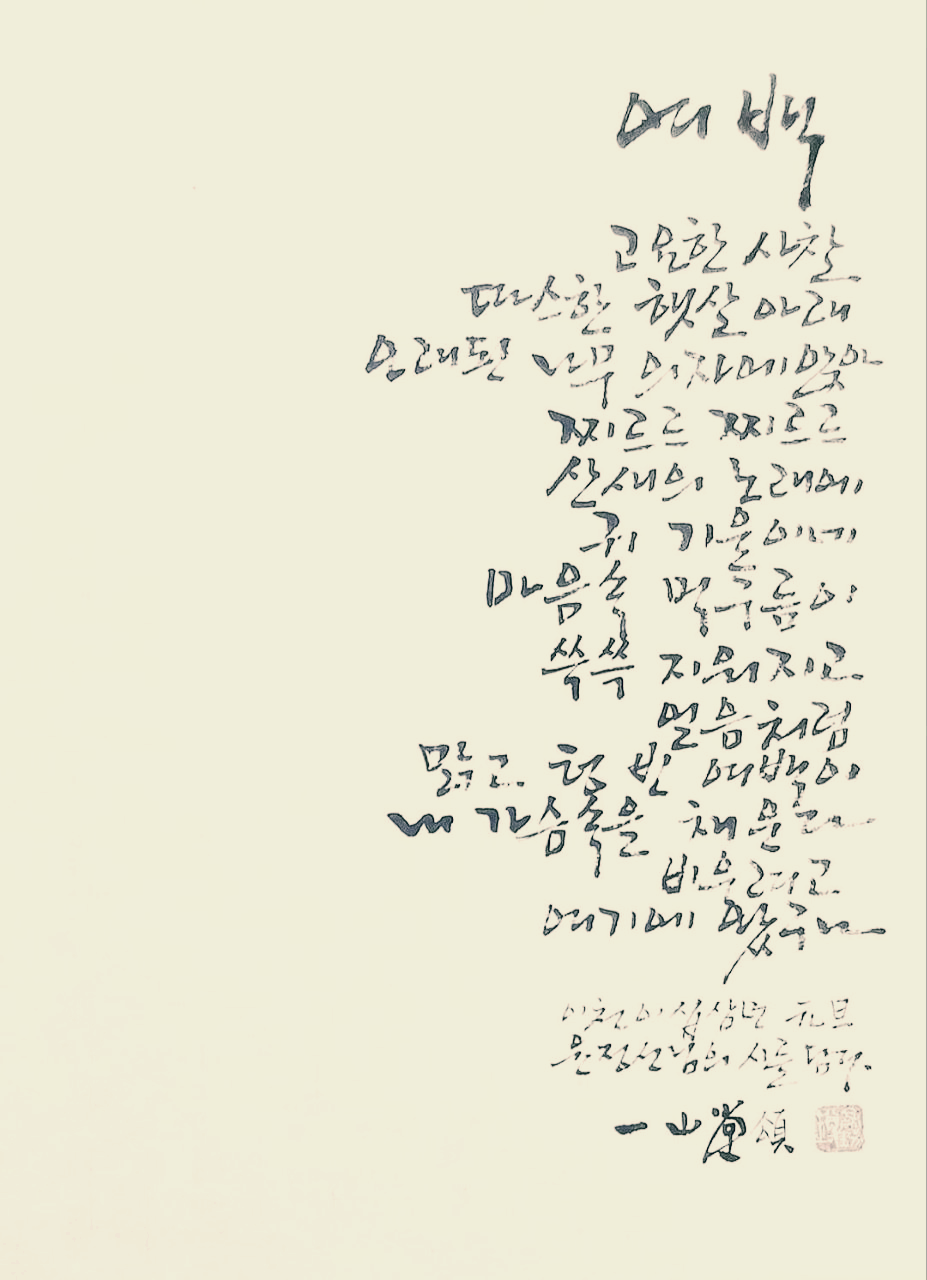 여백
고요한 사찰
따스한 햇살 아래
오래된 나무 의자에 앉아
찌르르 찌르르
산새의 노래에
귀 기울이네
마음속 먹구름이
쓱쓱 지워지고
얼음처럼
맑고 텅 빈 여백이
내 가슴속을 채운다
비우려고
여기에 왔구나
이천이십삼년 元旦
윤정선님의 시를 담다.
一山堂 頌